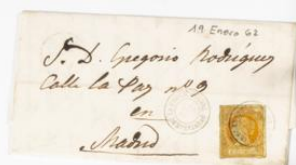 19 Enero 62
S. D. Gregorio Rodriguez
Calle la Paz nº 9
en
Madrid